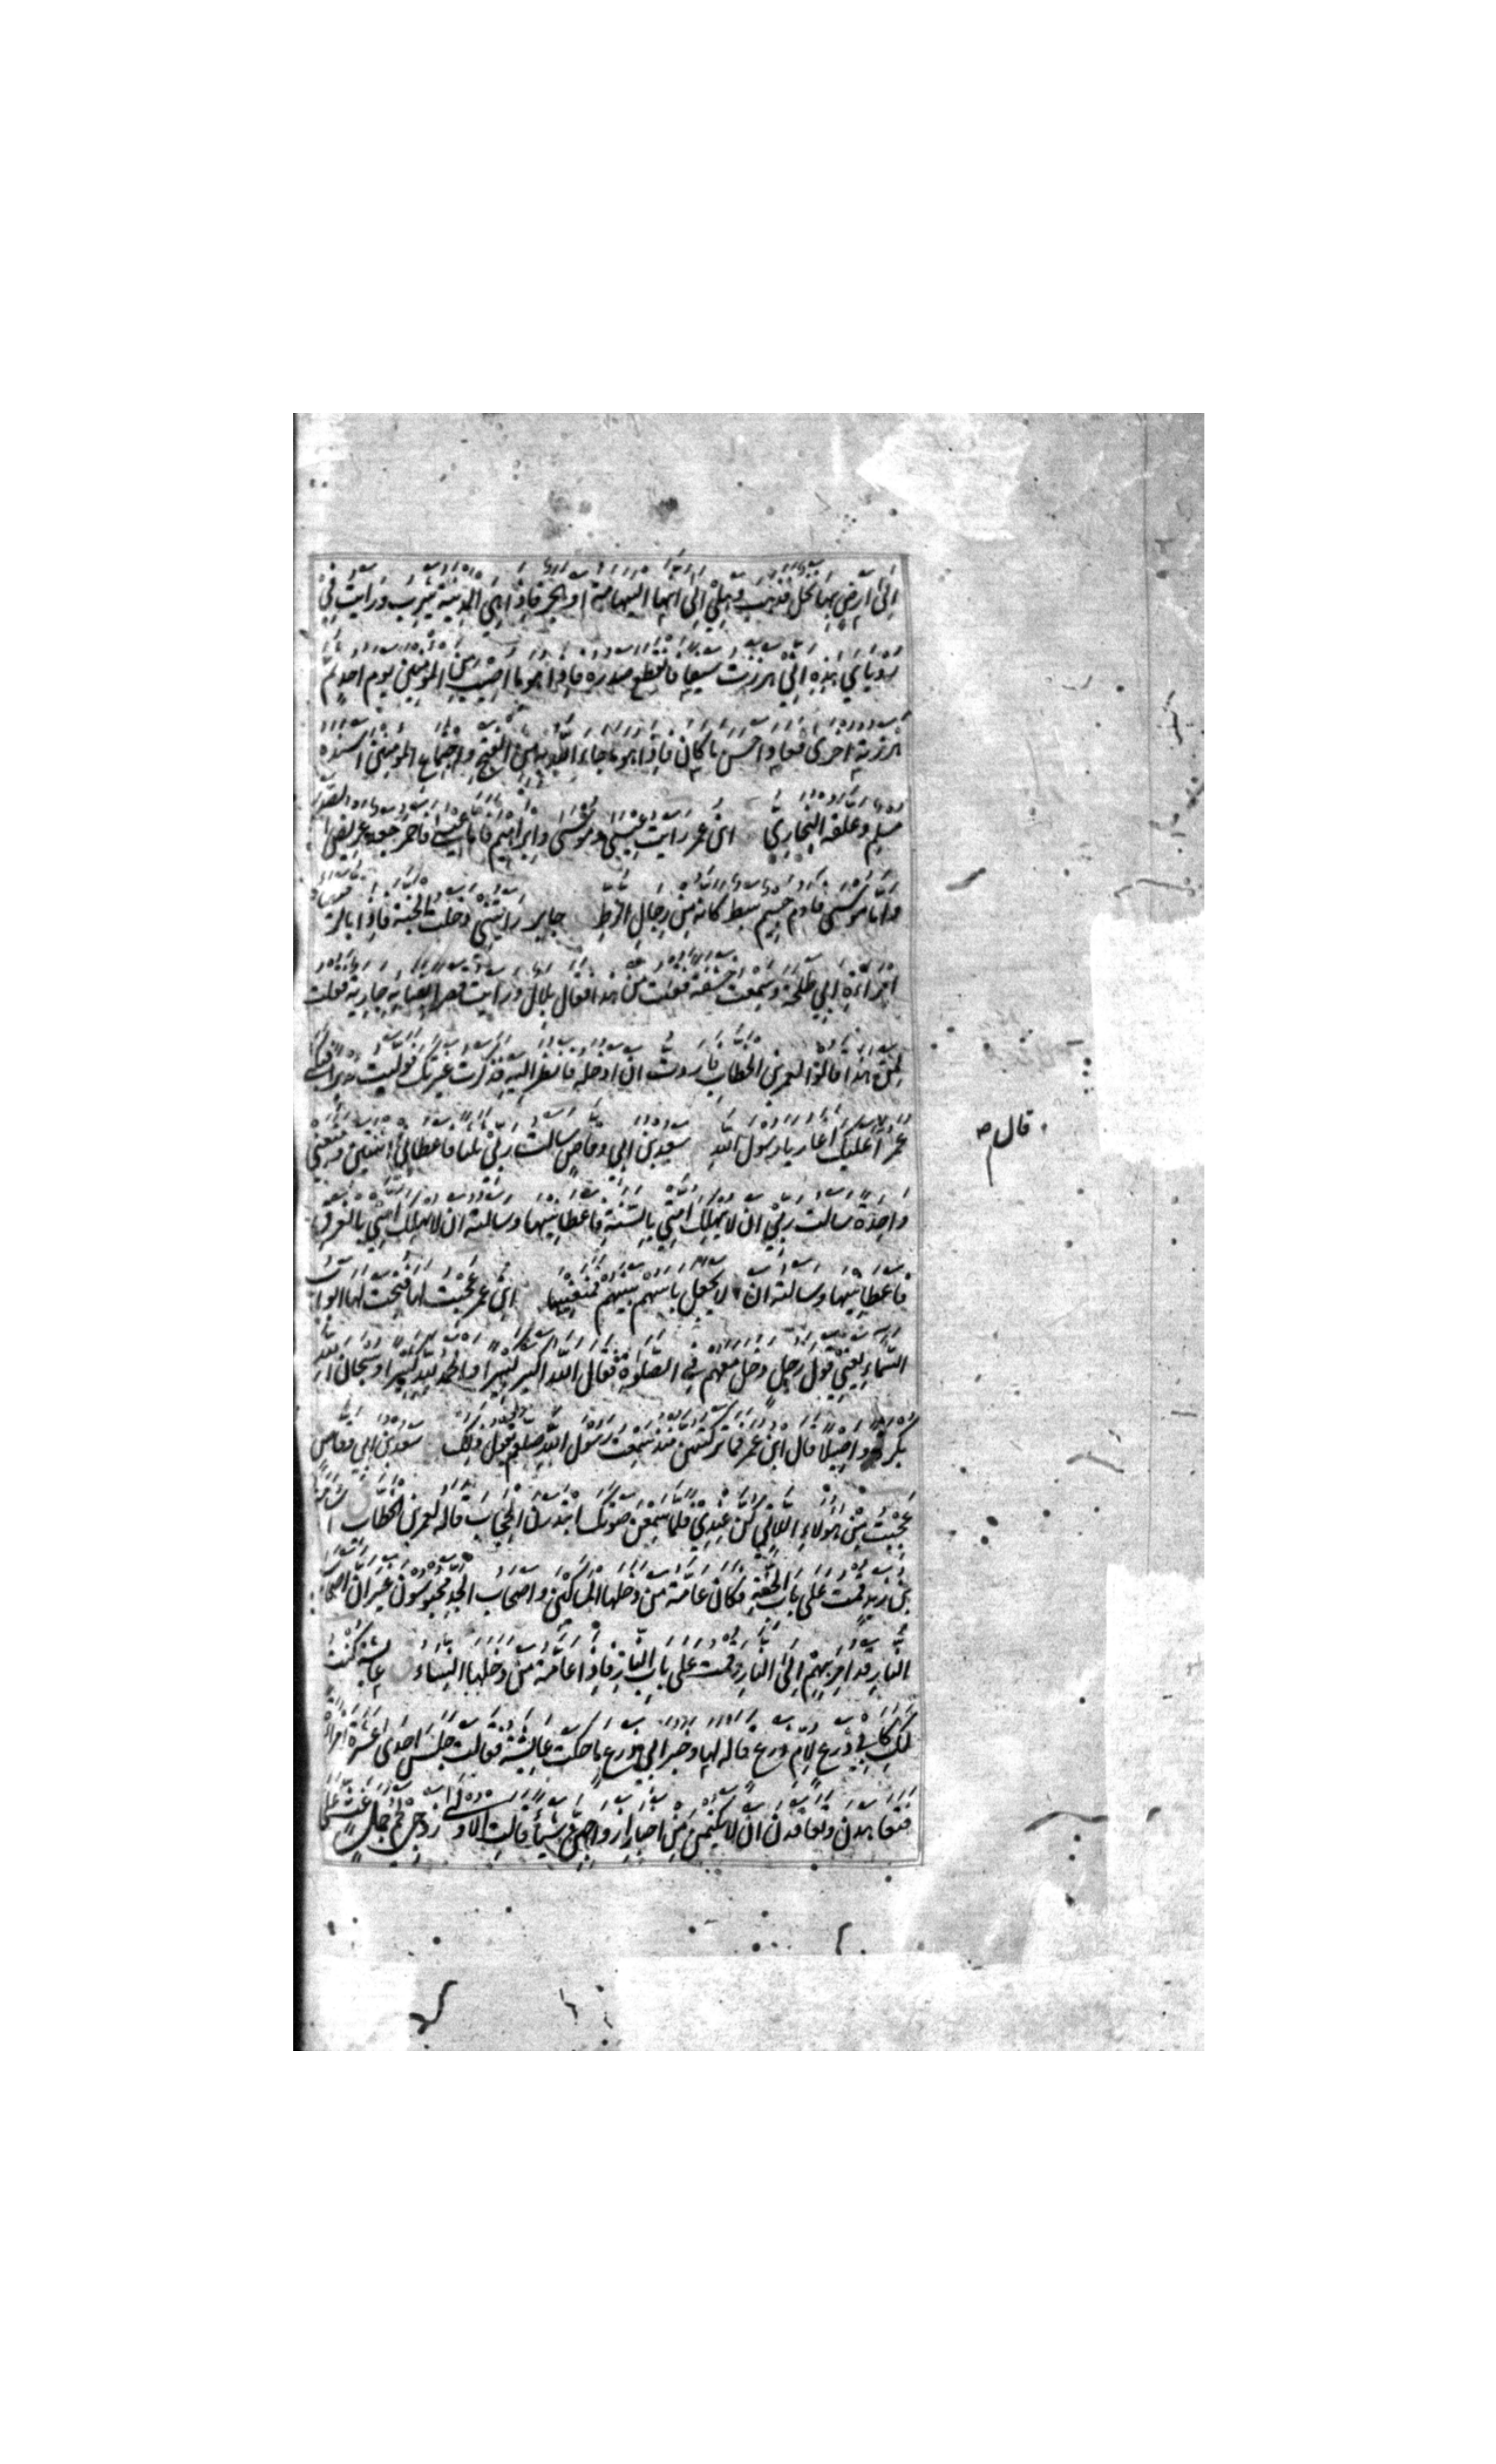 اِلٰى اَرْضٍ بِهَا نخل فذهب وهلى الى انها اليمامة او هجر فاذا هى المدينة يثرب ورايت فى
روياى هذه انى هززت سيفا فانقطع صدره فاذا هو ما اصيب من المومنين يوم احد ثم
هززته اخرى فعاد احسن ما كان فاذا هو ما جاء الله به من الفتح واجتماع المومنين اسنده
مسلم وعلقه البخارى ابن عمر رايت عيسى وموسى وابراهيم فاما عيسى فاحمر جعد عريض الصدر
واما موسى فادم جسيم سبط كانه من رجال الزط جابر رايتنى دخلت الجنة فاذا بالرميصاء
امراة ابى طلحة وسمعت خشفة فقلت من هذا فقال بلال ورايت قصرا بفنائه جارية فقلت
لمن هذا قالوا لعمر بن الخطاب فاردت ان ادخله فانظر اليه فذكرت غيرتك فوليت مدبرا فبكى
عمر أعليك أغار يا رسول الله سعد بن ابى وقاص سالت ربى ثلثا فاعطانى اثنتين ومنعنى
واحدة سالت ربى ان لا يهلك امتى بالسنة فاعطانيها وسالته ان لا يهلك امتى بالغرق
فاعطانيها وسالته ان لا يجعل باسهم بينهم فمنعنيها ابن عمر عجبت لها فتحت لها ابواب
السماء يعنى قول رجل دخل معهم فى الصلوة فقال الله اكبر كبيرا والحمد لله كثيرا وسبحان الله
بكرة واصيلا قال ابن عمر فما تركتهن منذ سمعت رسول الله صلعم يقول ذلك سعد بن ابى وقاص
عجبت من هولاء اللاتى كن عندى فلما سمعن صوتك ابتدرن الحجاب قاله لعمر بن الخطاب اسامة
بن زيد قمت على باب الجنة فكان عامة من دخلها المساكين واصحاب الجد محبوسون غير ان اصحاب
النار قد امر بهم الى النار وقمت على باب النار فاذا عامة من دخلها النساء عايشة كنت
لك كابى زرع لام زرع قاله لها وخبر ابى زرع ما حكت عايشة فقالت جلس احدى عشرة امراة
فتعاهدن وتعاقدن ان لا يكتمن من اخبار ازواجهن شيئا قالت الاولى زوجى لحم جمل غث على
قال ص